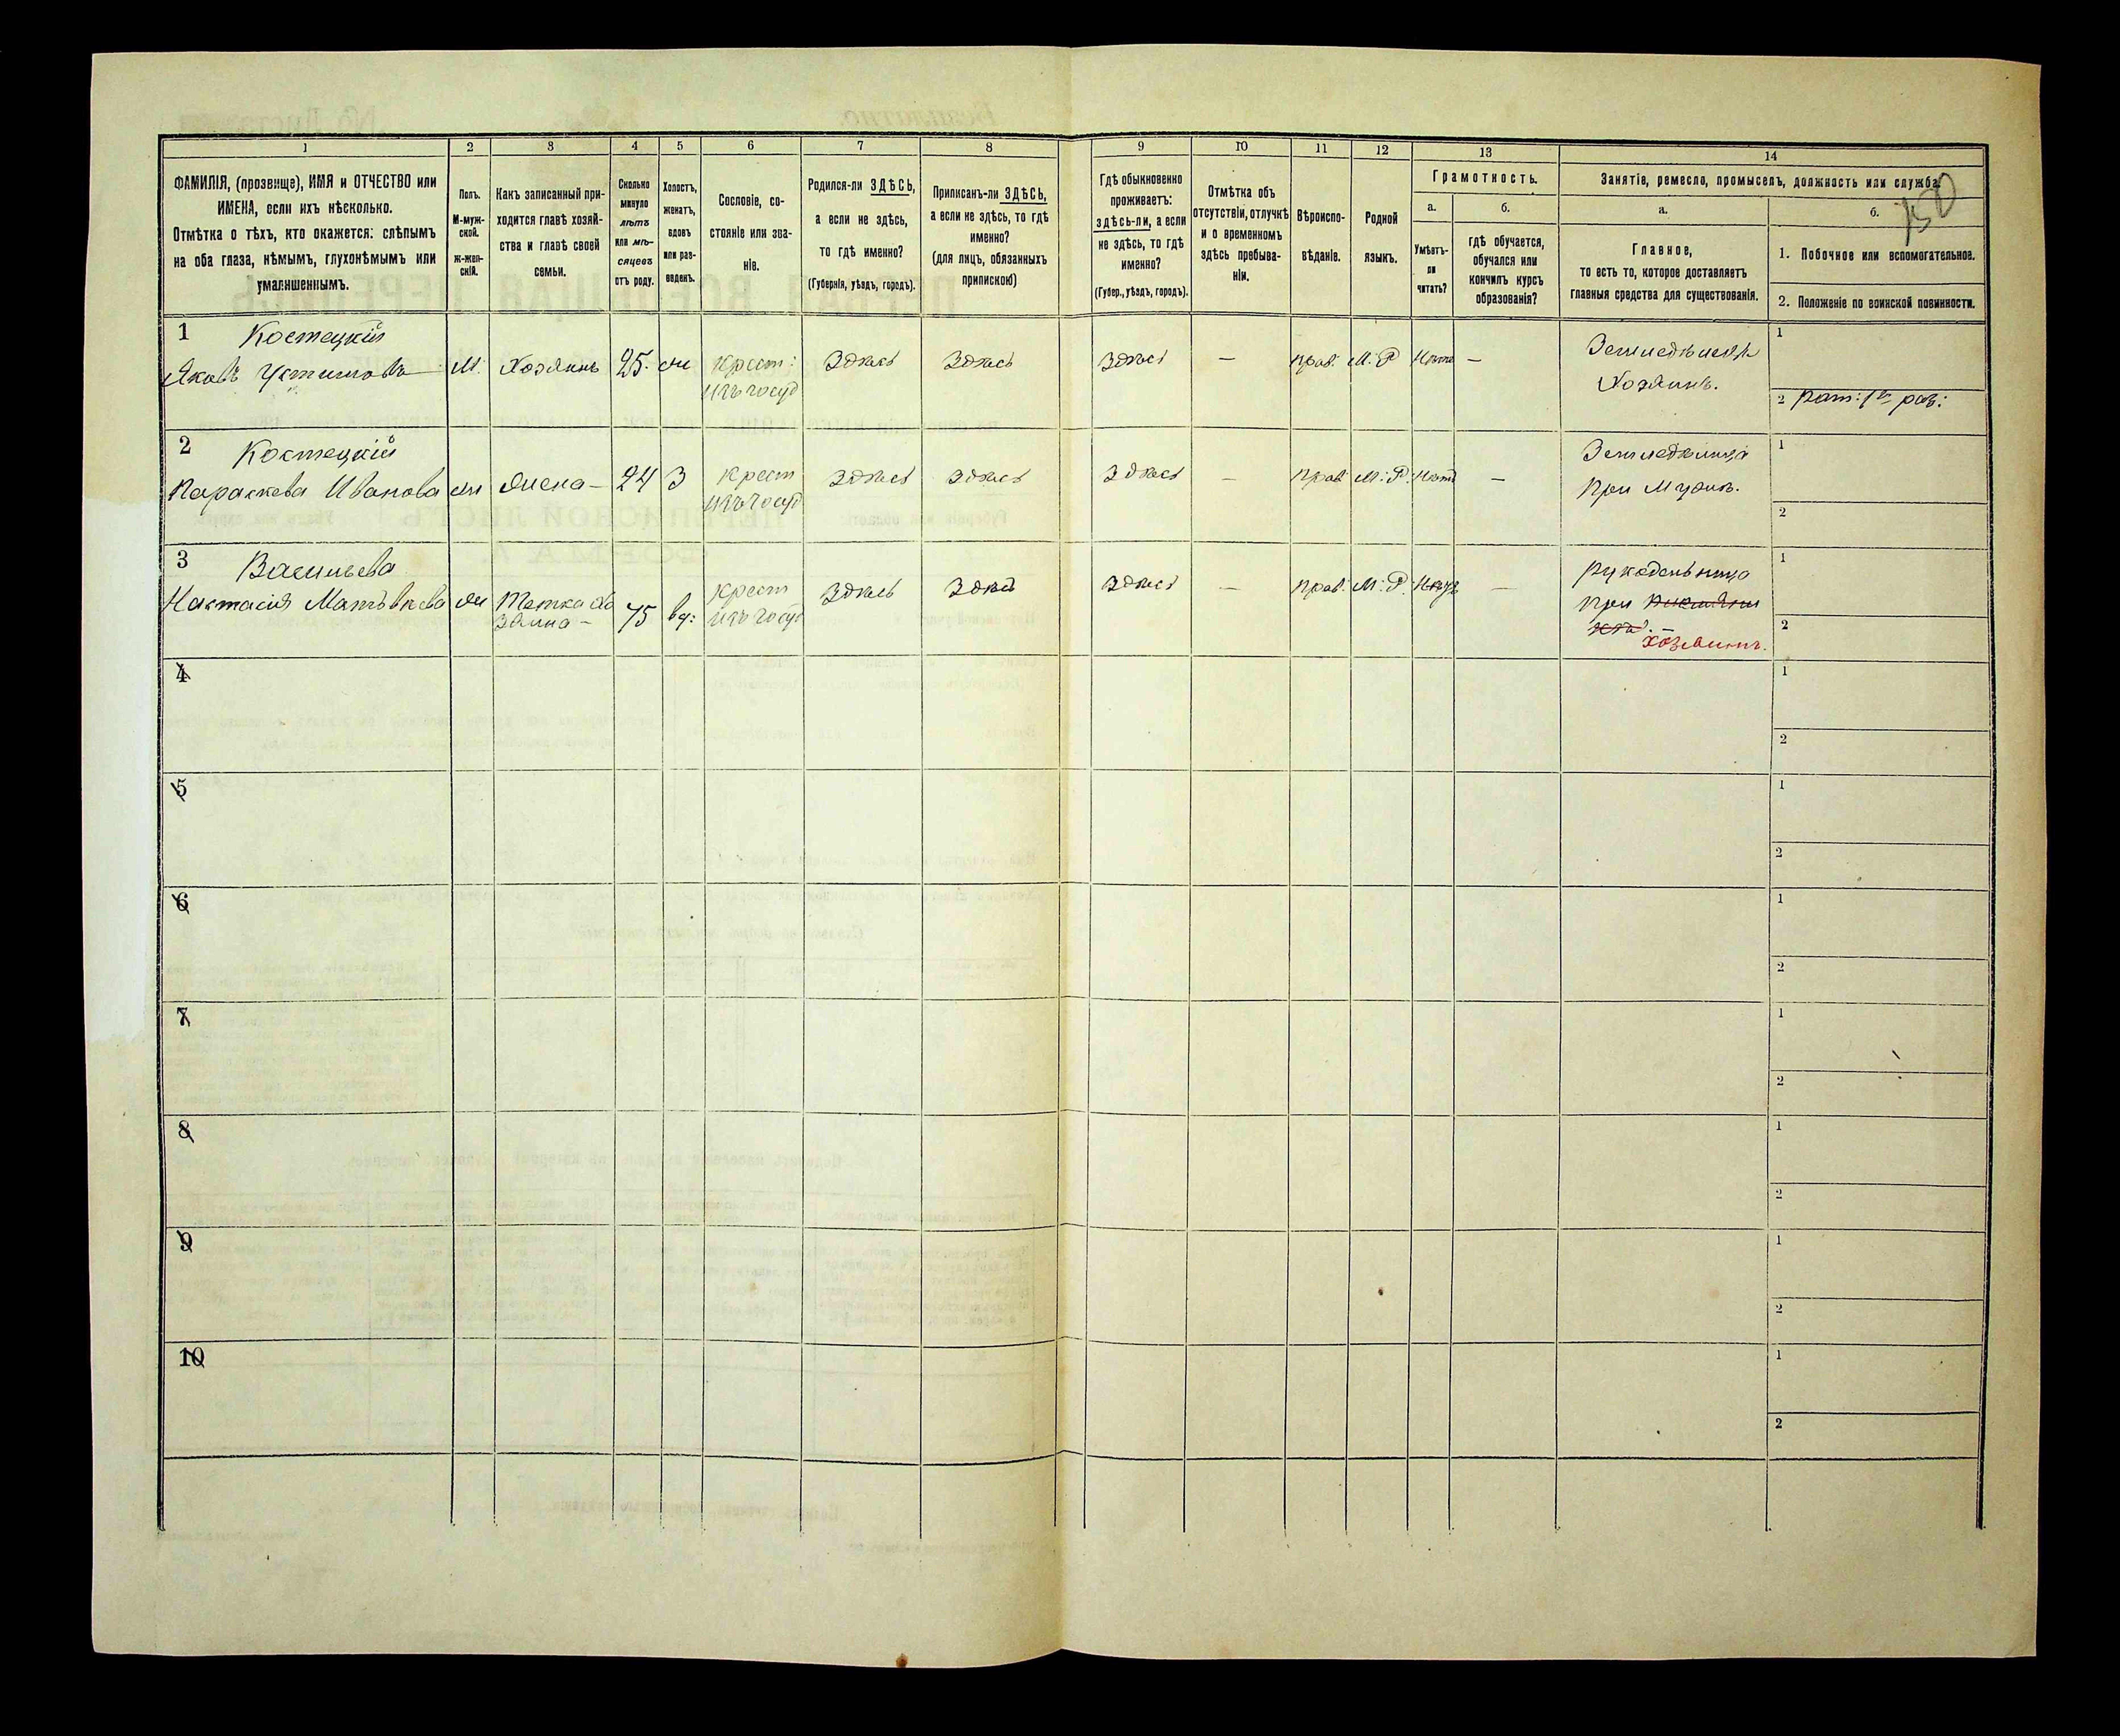 150
1
2
3
4
5
6
7
8
9
10
11
12
13
14
ФАМИЛІЯ, (прозвище), ИМЯ и ОТЧЕСТВО или
ИМЕНА, если ихъ нѣсколько.
Отмѣтка о тѣхъ, кто окажется: слѣпымъ
на оба глаза, нѣмымъ, глухонѣмымъ или
умалишеннымъ.
Полъ.
М-муж-
ской.
Ж-жен-
скій.
Какъ записанный при-
ходится главѣ хозяй-
ства и главѣ своей
семьи.
Сколько
минуло
лѣтъ
или мѣ-
сяцевъ
отъ роду.
Холостъ,
женатъ,
вдовъ
или раз-
веденъ.
Сословіе, со-
стояніе или зва-
ніе.
Родился-ли ЗДѢСЬ,
а если не здѣсь,
то гдѣ именно?
(Губернія, уѣздъ, городъ).
Приписанъ-ли ЗДѢСЬ,
а если не здѣсь, то гдѣ
именно?
(для лицъ, обязанныхъ
припискою)
Гдѣ обыкновенно
проживаетъ:
здѣсь-ли, а если
не здѣсь, то гдѣ
именно?
(Губер., уѣздъ, городъ).
Отмѣтка объ
отсутствіи, отлучкѣ
и о временномъ
здѣсь пребыва-
ніи.
Вѣроиспо-
вѣданіе.
Родной
языкъ.
Грамотность.
а.
Умѣетъ-
ли
читать?
б.
Гдѣ обучается,
обучался или
кончилъ курсъ
образованія?
Занятіе, ремесло, промыселъ, должность или служба.
а.
Главное,
то есть то, которое доставляетъ
главныя средства для существованія.
б.
1. Побочное или вспомогательное.
2. Положеніе по воинской повинности.
1
Костецкій
Яковъ Устимовъ
М.
Хозяинъ
25.
ж
Крест:
изъ госуд
Здѣсь
Здѣсь
Здѣсь
—
прав.
М. Р
Нѣтъ
—
Земледѣлецъ
Хозяинъ.
1
2 рат: 1го раз:
2
Костецкій
Параскева Иванова
ж
жена -
24
З
Крест
изъ госуд
Здѣсь
здѣсь
Здѣсь
—
прав.
М. Р.
Нѣтъ
—
Земледѣлица
При Мужѣ.
1
2
3
Васильева
Настасія Матвѣева
ж
Тетка хо
зяина -
75
вд:
Крест
изъ госуд
Здѣсь
Здѣсь
здѣсь
—
прав.
М. Р.
—
рукодельница
при
хозяинѣ.
1
2
4
1
2
5
1
2
6
1
2
7
1
2
8
1
2
9
1
2
10
1
2